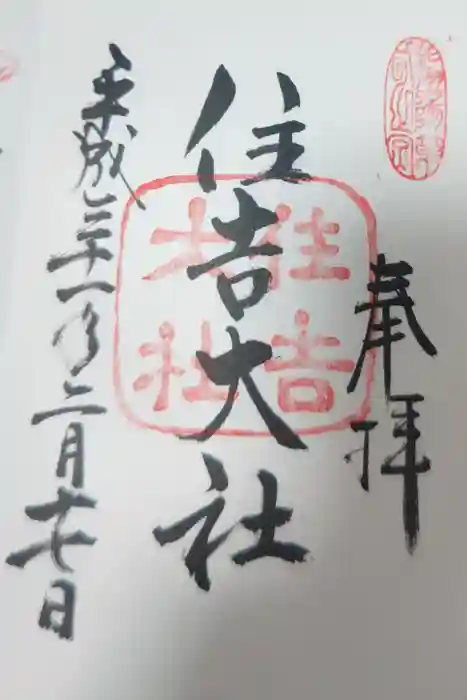 奉拝
住吉大社
住吉
大社
平成三十一年二月十七日